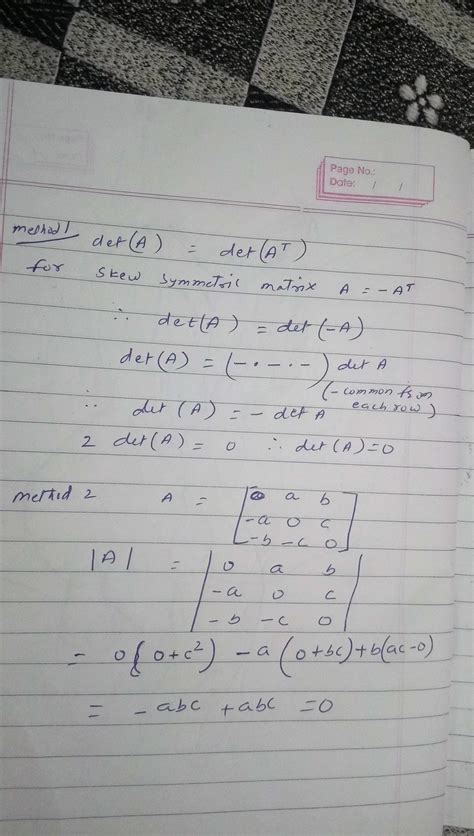 Page No.:
Date: / /
method 1 det(A) = det(Aᵀ)
for skew symmetric matrix A = -Aᵀ
∴ det(A) = det(-A)
det(A) = (- · - · -) det A
(- common from each row)
∴ det (A) = - det A
2 det(A) = 0 ∴ det(A)=0
method 2 A = [0 a b
-a 0 c
-b -c 0]
|A| = | 0 a b
-a 0 c
-b -c 0 |
= 0{0+c²) - a(0+bc)+b(ac-0)
= - abc + abc = 0